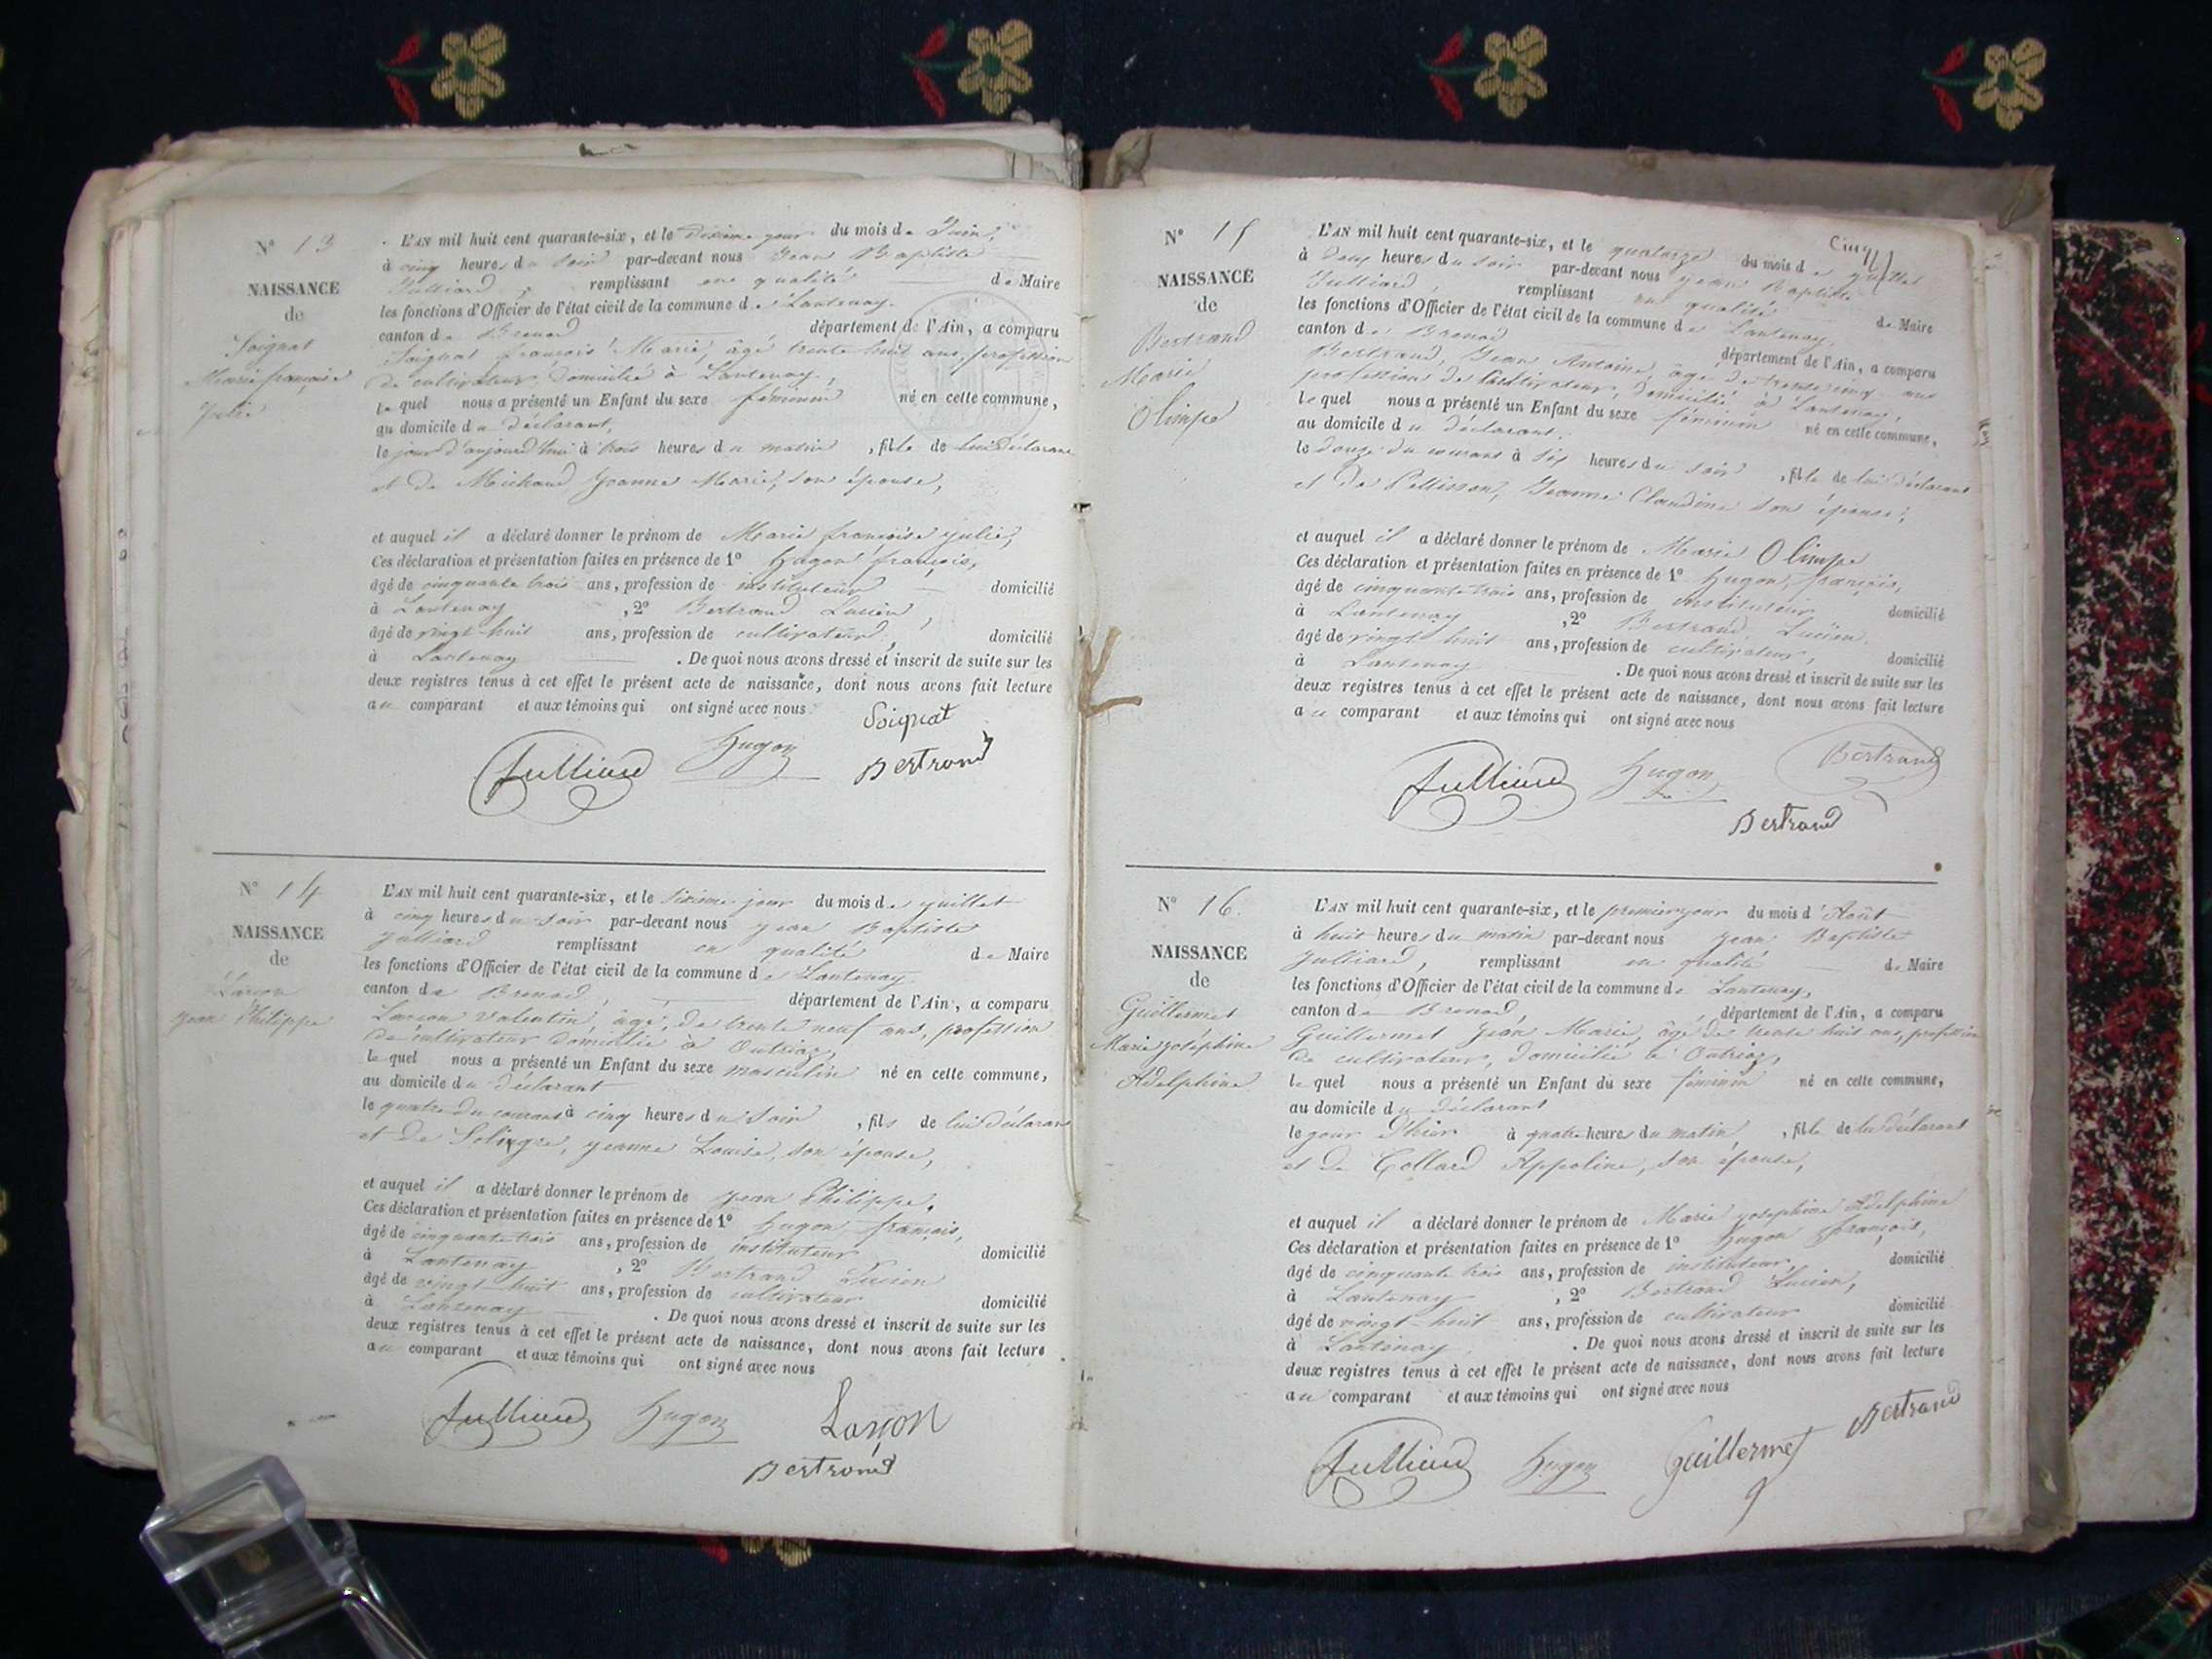 N° 13
NAISSANCE
de
Soignat
Marie françoise
Julie
L'AN mil huit cent quarante-six, et le dixieme jour du mois de Juin,
à cinq heures du soir par-devant nous Jean Baptiste
Julliard, remplissant en qualité de Maire
les fonctions d'Officier de l'état civil de la commune de Lantenay.
canton de Brenod département de l'Ain, a comparu
Soignat françois Marie, âgé trente huit ans, profession
de cultivateur, domicilié à Lantenay,
lequel nous a présenté un Enfant du sexe féminin né en cette commune,
au domicile du déclarant,
le jour d'aujourd'hui à trois heures du matin, fille de lui déclarant
et de Michaud Jeanne Marie, son épouse,
et auquel il a déclaré donner le prénom de Marie françoise julie,
Ces déclaration et présentation faites en présence de 1° Hugon françois,
âgé de cinquante trois ans, profession de instituteur domicilié
à Lantenay, 2° Bertrand Lucien,
âgé de vingt-huit ans, profession de cultivateur, domicilié
à Lantenay. De quoi nous avons dressé et inscrit de suite sur les
deux registres tenus à cet effet le présent acte de naissance, dont nous avons fait lecture
au comparant et aux témoins qui ont signé avec nous
Soignat
Julliard Hugon Bertrand
N° 14
NAISSANCE
de
Lançon
jean Philippe
L'AN mil huit cent quarante-six, et le sixième jour du mois de juillet
à cinq heures du soir par-devant nous jean Baptiste
julliard remplissant en qualité de Maire
les fonctions d'Officier de l'état civil de la commune de Lantenay
canton de Brenod, département de l'Ain, a comparu
Lançon Valentin, âgé de trente neuf ans, profession
de cultivateur domicilié à Outriaz,
lequel nous a présenté un Enfant du sexe masculin né en cette commune,
au domicile du déclarant
le quatre du courant à cinq heures du soir, fils de lui déclarant
et de jeanne Louise, son épouse,
et auquel il a déclaré donner le prénom de jean Philippe.
Ces déclaration et présentation faites en présence de 1° Hugon françois,
âgé de cinquante trois ans, profession de instituteur domicilié
à Lantenay, 2° Bertrand Lucien
âgé de vingt-huit ans, profession de cultivateur domicilié
à Lantenay. De quoi nous avons dressé et inscrit de suite sur les
deux registres tenus à cet effet le présent acte de naissance, dont nous avons fait lecture
au comparant et aux témoins qui ont signé avec nous
Julliard Hugon Lançon
Bertrand
Cinq
N° 15
NAISSANCE
de
Bertrand
Marie
Olimpe
L'AN mil huit cent quarante-six, et le quatorze du mois de juillet
à deux heures du soir par-devant nous jean Baptiste
Julliard, remplissant en qualité de Maire
les fonctions d'Officier de l'état civil de la commune de Lantenay,
canton de Brenod département de l'Ain, a comparu
Bertrand, Jean Antoine, âgé de trente cinq ans
profession de cultivateur, domicilié à Lantenay,
lequel nous a présenté un Enfant du sexe féminin né en cette commune,
au domicile du déclarant,
le douze du courant à six heures du soir, fille de lui déclarant
et de Pellisson, Jeanne Claudine son épouse,
et auquel il a déclaré donner le prénom de Marie Olimpe
Ces déclaration et présentation faites en présence de 1° Hugon, françois,
âgé de cinquante trois ans, profession de instituteur domicilié
à Lantenay, 2° Bertrand Lucien
âgé de vingt huit ans, profession de cultivateur, domicilié
à Lantenay. De quoi nous avons dressé et inscrit de suite sur les
deux registres tenus à cet effet le présent acte de naissance, dont nous avons fait lecture
au comparant et aux témoins qui ont signé avec nous
Julliard Hugon Bertrand
Bertrand
N° 16.
NAISSANCE
de
Guillermet
Marie joséphine
Adelphine
L'AN mil huit cent quarante-six, et le premier jour du mois d'Août
à huit heures du matin par-devant nous jean Baptiste
Julliard, remplissant en qualité de Maire
les fonctions d'Officier de l'état civil de la commune de Lantenay,
canton de Brenod, département de l'Ain, a comparu
Guillermet jean Marie, âgé de trente huit ans, profession
de cultivateur, domicilié à Outriaz,
lequel nous a présenté un Enfant du sexe féminin né en cette commune,
au domicile du déclarant
le jour d'hier à quatre heures du matin, fille de lui déclarant
et de Collard Appoline, son épouse,
et auquel il a déclaré donner le prénom de Marie josephine Adelphine
Ces déclaration et présentation faites en présence de 1° Hugon françois,
âgé de cinquante trois ans, profession de instituteur, domicilié
à Lantenay, 2° Bertrand Lucien,
âgé de vingt-huit ans, profession de cultivateur domicilié
à Lantenay. De quoi nous avons dressé et inscrit de suite sur les
deux registres tenus à cet effet le présent acte de naissance, dont nous avons fait lecture
au comparant et aux témoins qui ont signé avec nous
Julliard Hugon Guillermet Bertrand